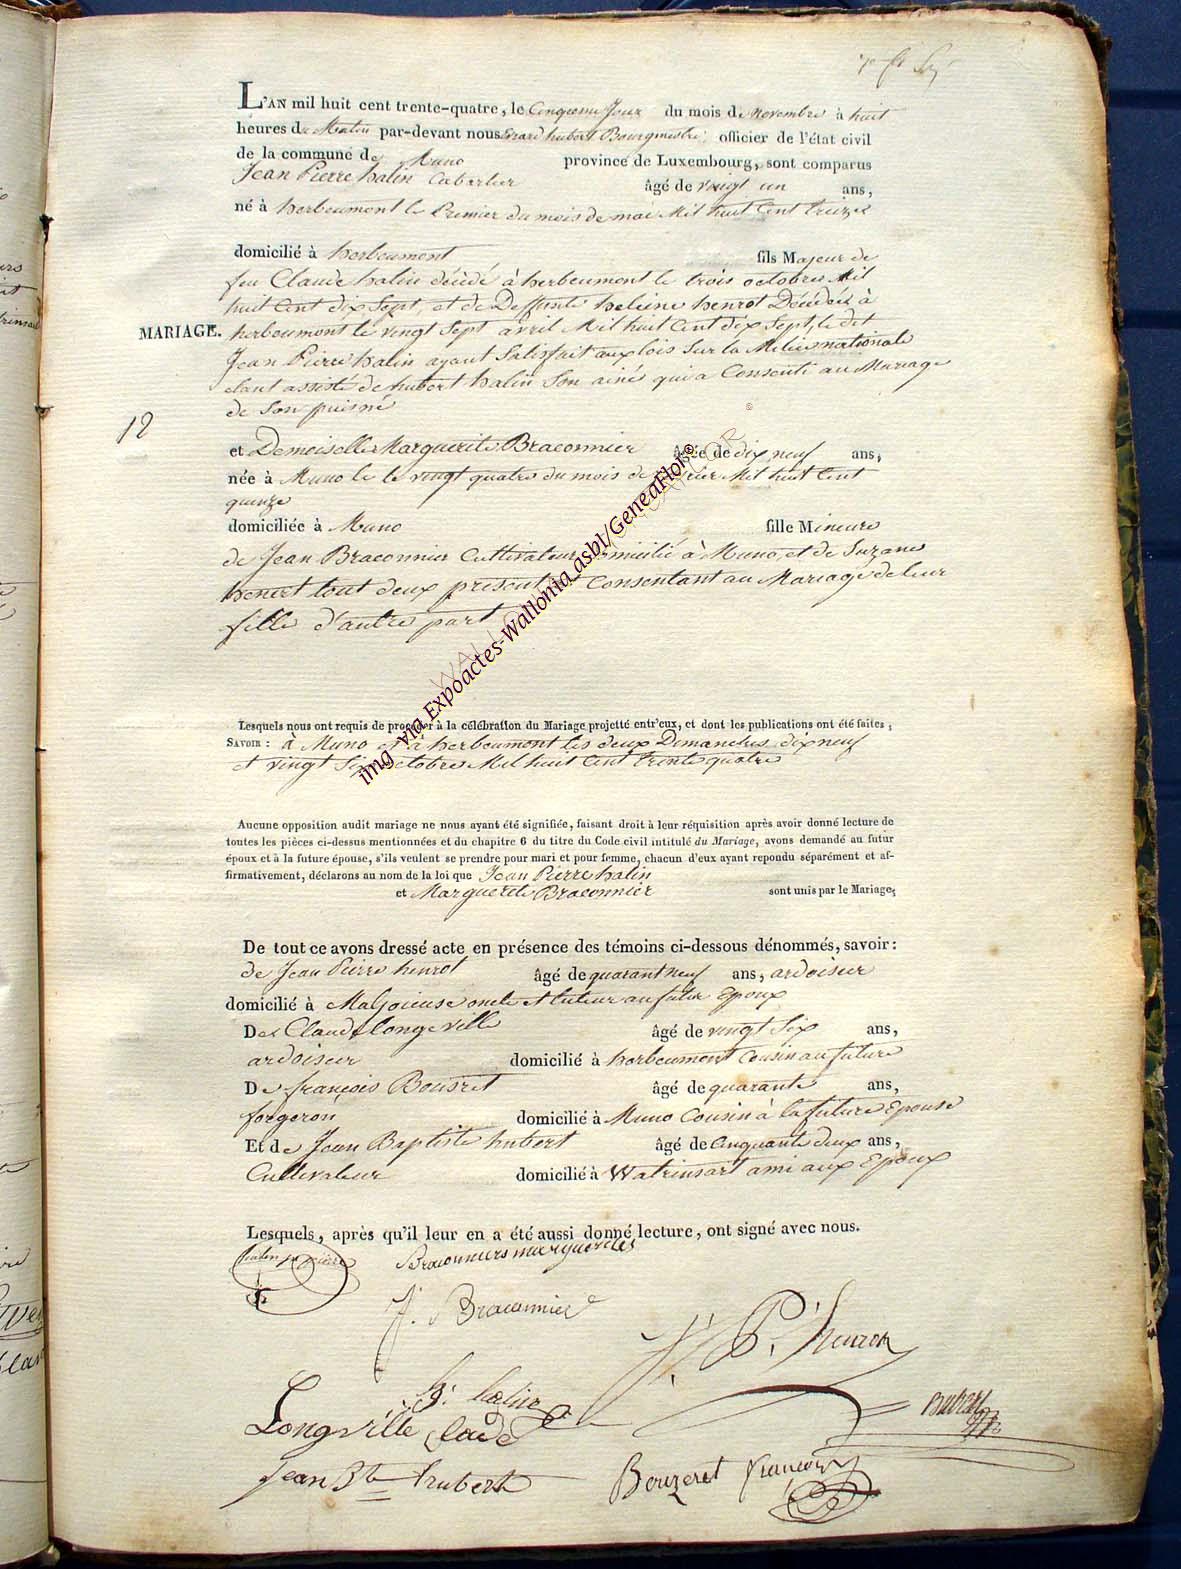 L'AN mil huit cent trente-quatre, le Cinquieme Jour du mois de novembre à huit
heures du Matin par-devant nous Erard hubert Bourgmestre, officier de l'état civil
de la commune de Muno province de Luxembourg, sont comparus
Jean Pierre halin Cabartier âgé de vingt un ans,
né à herbeumont le Premier du mois de mai Mil huit Cent treize
domicilié à herbeumont fils Majeur de
feu Claude halin décédé à herbeumont le trois octobre Mil
huit Cent dix Sept, et de Deffunte heleine henrot Décédée à
MARIAGE. herbeumont le vingt Sept avril Mil huit Cent dix Sept, le dit
Jean Pierre halin ayant Satisfait aux lois Sur la Milice nationale
etant assisté de hubert halin Son ainé qui a Consenti au Mariage
de Son puisné
12
et Demoiselle Marguerite Braconnier âgée de dix neuf ans,
née à Muno le le vingt quatre du mois de Mil huit Cent
quinze
domiciliée à Muno fille Mineure
de Jean Braconnier Cultivateur domicilié à Muno, et de Suzane
henirt tout deux présent et Consentant au Mariage de leur
fille d'autre part
Lesquels nous ont requis de procéder à la célébration du Mariage projetté entr'eux, et dont les publications ont été faites,
SAVOIR : à Muno et à herbeumont les deux Dimanches dix neuf
et vingt Six octobre Mil huit Cent trente quatre
Aucune opposition audit mariage ne nous ayant été signifiée, faisant droit à leur réquisition après avoir donné lecture de
toutes les pièces ci-dessus mentionnées et du chapitre 6 du titre du Code civil intitulé du Mariage, avons demandé au futur
époux et à la future épouse, s'ils veulent se prendre pour mari et pour femme, chacun d'eux ayant repondu séparément et af-
firmativement, déclarons au nom de la loi que Jean Pierre halin
et Marguerite Braconnier sont unis par le Mariage;
De tout ce avons dressé acte en présence des témoins ci-dessous dénommés, savoir:
de Jean Pierre henrot âgé de quarant neuf ans, ardoiseur
domicilié à Maljoieuse oncle et tuteur au futur Epoux
De Claude longeville âgé de vingt Six ans,
ardoiseur domicilié à herbeumont Cousin au future
De françois Bousret âgé de quarante ans,
forgeron domicilié à Muno Cousin à la future Epouse
Et de Jean Baptiste hubert âgé de Cinquante deux ans,
Cultivateur domicilié à Watrinsart ami aux Epoux
Lesquels, après qu'il leur en a été aussi donné lecture, ont signé avec nous.
halin jn pierre Braconniers marguerites
J. Braconnier
J. P. henrot
h. halin
Hubert
Longville Claude
jean Bte hubert Bouzeret françois
img via Expoactes-Wallonia.asbl/GeneaFlor©